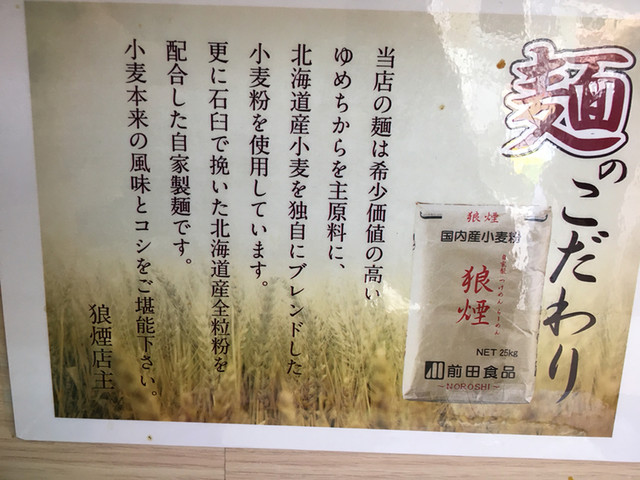 麺のこだわり
当店の麺は希少価値の高い
ゆめちからを主原料に、
北海道産小麦を独自にブレンドした
小麦粉を使用しています。
更に石臼で挽いた北海道産全粒粉を
配合した自家製麺です。
小麦本来の風味とコシをご堪能下さい。
狼煙店主
狼煙
国内産小麦粉
自家製 つけめん・らうめん
狼煙
NET 25kg
前田食品
~NOROSHI~